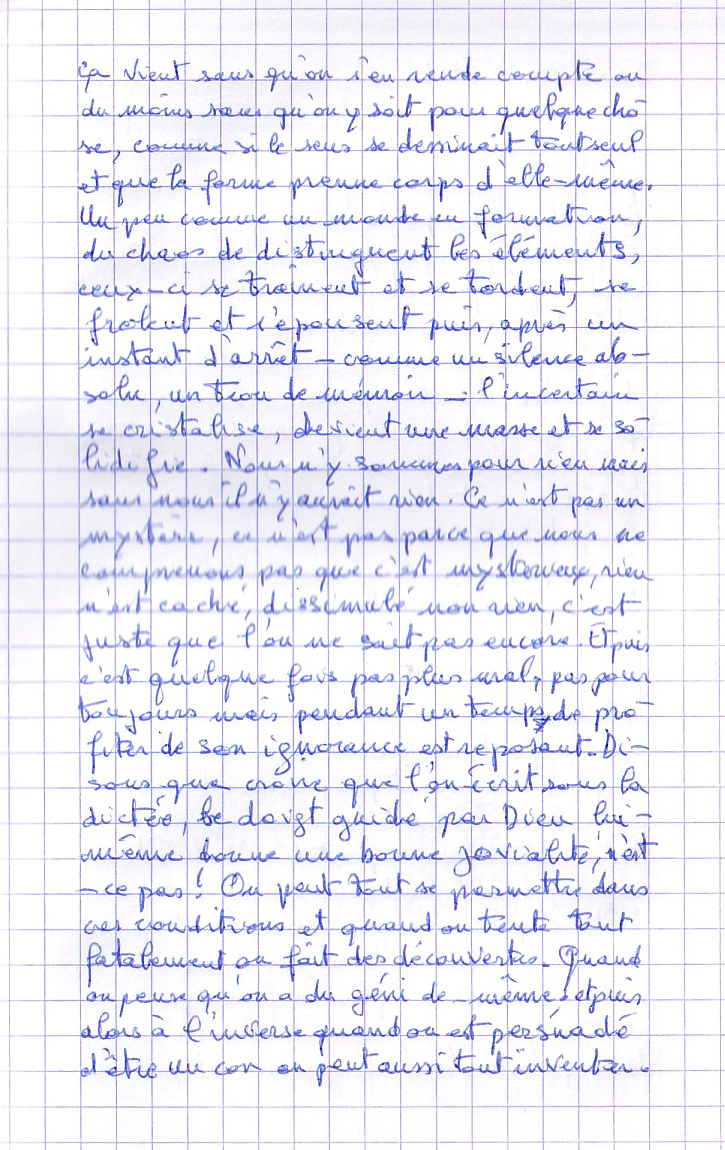 ça vient sans qu'on s'en rende compte ou
du moins sans qu'on y soit pour quelque cho
se, comme si le sens se dessinait tout seul
et que la forme prenne corps d'elle-même.
Un peu comme un monde en formation,
du chaos de distinguent les éléments,
ceux-ci se traînent et se tordent, se
frolent et s'épousent puis, après un
instant d'arrêt - comme un silence ab-
solu, un trou de mémoir - l'incertain
se cristalise, devient une masse et se so
lidifie. Nous n'y sommes pour rien mais
sans nous il n'y aurait rien. Ce n'est pas un
mystère, ce n'est pas parce que nous ne
comprenons pas que c'est mystérieux, rien
n'est caché, dissimulé non rien, c'est
juste que l'on ne sait pas encore. Et puis
c'est quelque fois pas plus mal, pas pour
toujours mais pendant un temps, de pro
fiter de son ignorance est reposant. Di-
sons que croire que l'on écrit sous la
dictée, le doigt guidé par Dieu lui-
même donne une bonne jovialité, n'est
-ce pas! On peut tout se permettre dans
ces conditions et quand on tente tout
fatalement on fait des découvertes. Quand
on pense qu'on a du géni de-même! et puis
alors à l'inverse quand on est persuadé
d'être un con on peut aussi tout inventer.